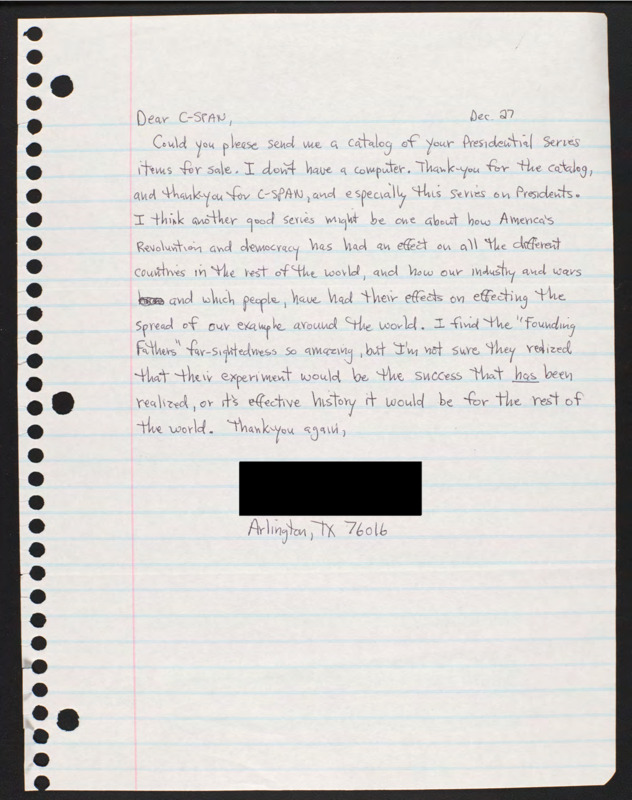 Dear C-SPAN, Dec. 27
Could you please send me a catalog of your Presidential Series
items for sale. I don't have a computer. Thank-you for the catalog,
and thank-you for C-SPAN, and especially this series on Presidents.
I think another good series might be one about how America's
Revoluntion and democracy has had an effect on all the different
countries in the rest of the world, and how our industry and wars
and which people, have had their effects on effecting the
spread of our example around the world. I find the "Founding
Fathers" far-sightedness so amazing, but I'm not sure they realized
that their experiment would be the success that has been
realized, or it's effective history it would be for the rest of
the world. Thank-you again,
Arlington, TX 76016